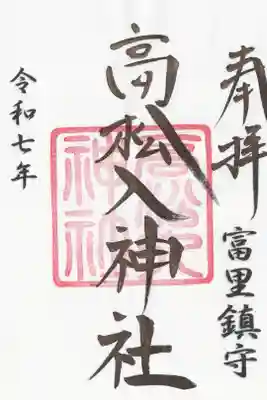 奉拝
富里鎮守
高松入神社
令和七年